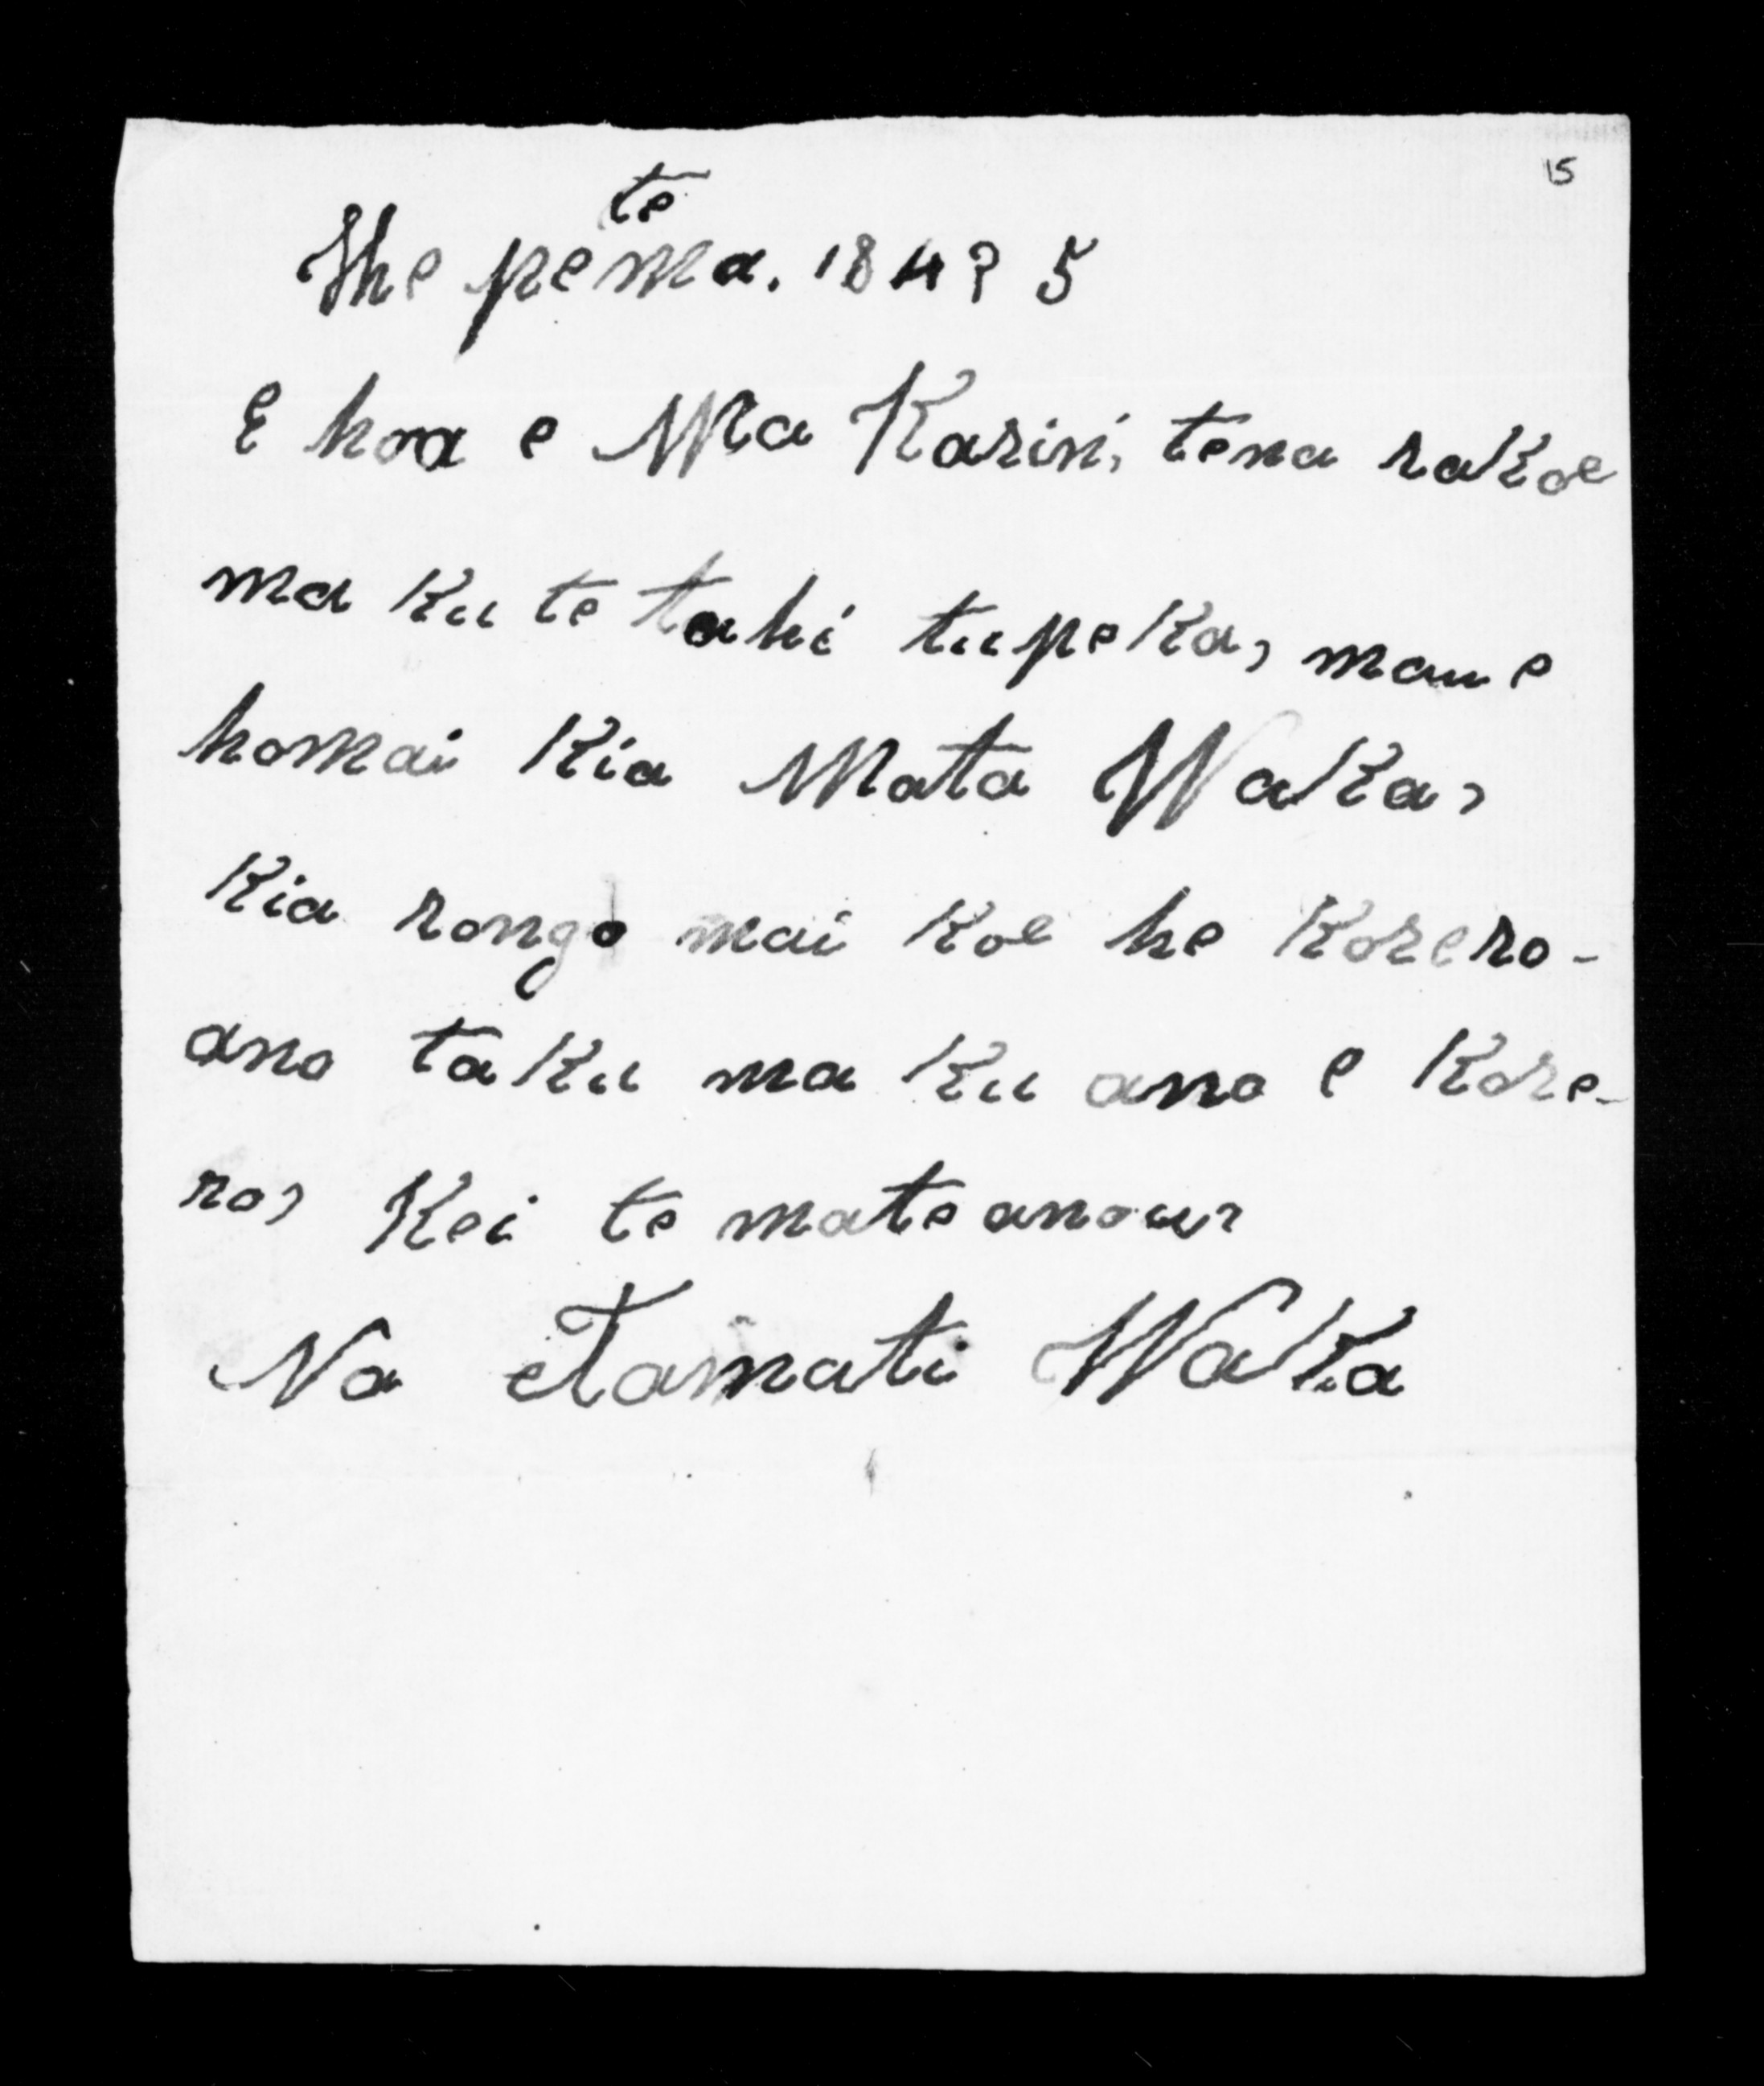 15
te
Hhe pema. 184? 5
E hoa e Ma Karini, tena rakoe
ma ku te tahi tupeka, mau e
homai kia Mata Waka,
Kia rongo mai koe he korero-
ano taku ma ku ano e kore-
ro, Kei te mate anoau,
Na Tamati Waka